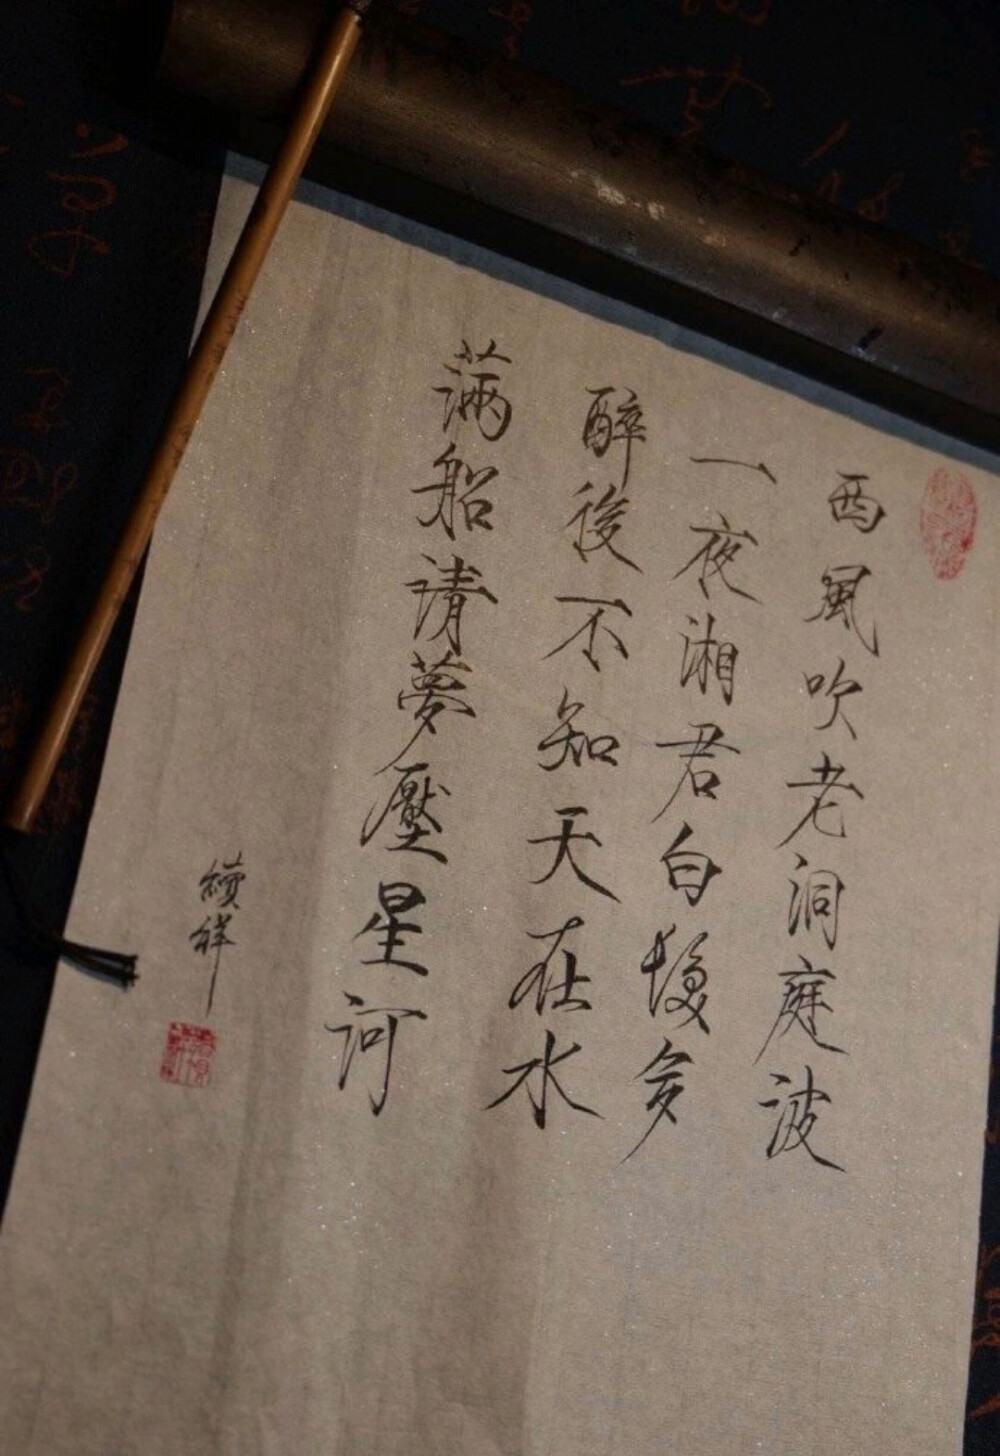 西風吹老洞庭波
一夜湘君白髮多
醉後不知天在水
滿船清夢壓星河
續祥